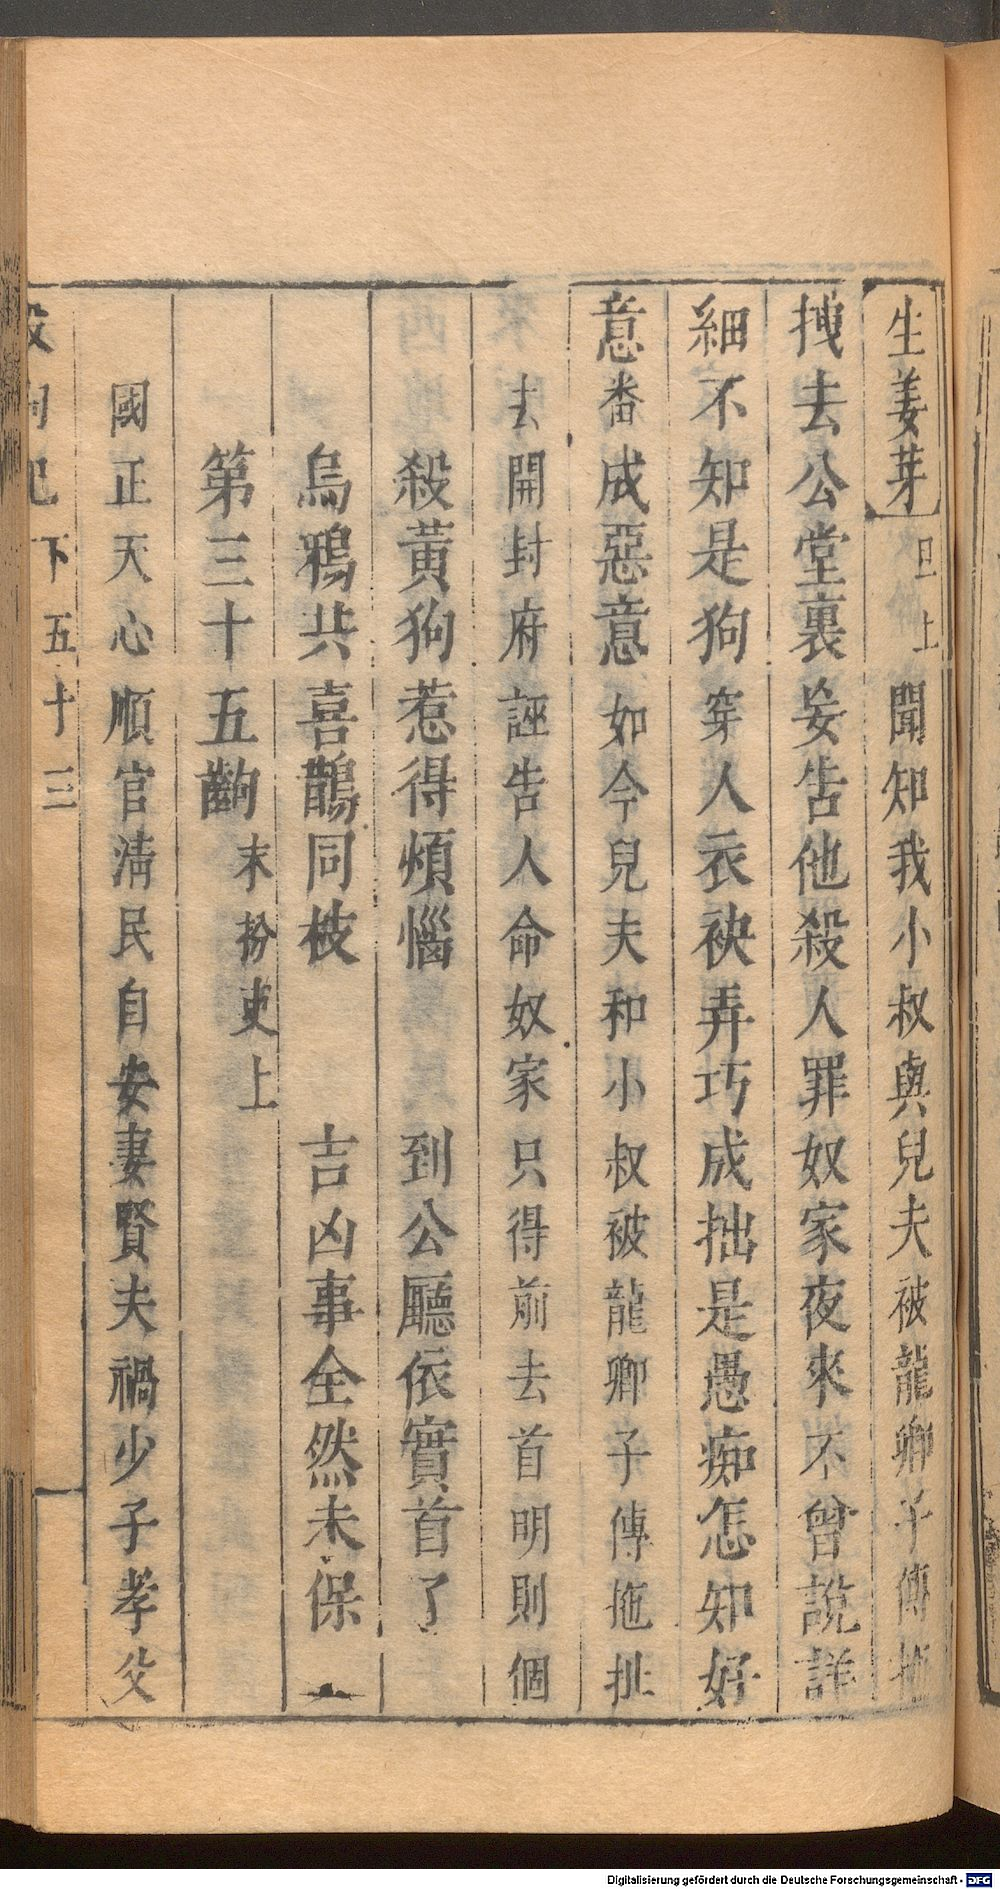 生姜芽 旦上 聞知我小叔與兒夫被龍卿子傳拖
拽去公堂裏妄告他殺人罪奴家夜來不曾說詳
細不知是狗穿人衣袂弄巧成拙是愚痴怎知好
意番成惡意如今兒夫和小叔被龍卿子傳拖扯
去開封府誣告人命奴家只得前去首明則個
殺黃狗惹得煩惱 到公廳依實首了
烏鴉共喜鵲同枝 吉凶事全然未保
第三十五齣 末扮吏上
國正天心順官清民自安妻賢夫禍少子孝父
殺狗記 下 五十三
Digitalisierung gefördert durch die Deutsche Forschungsgemeinschaft - DFG